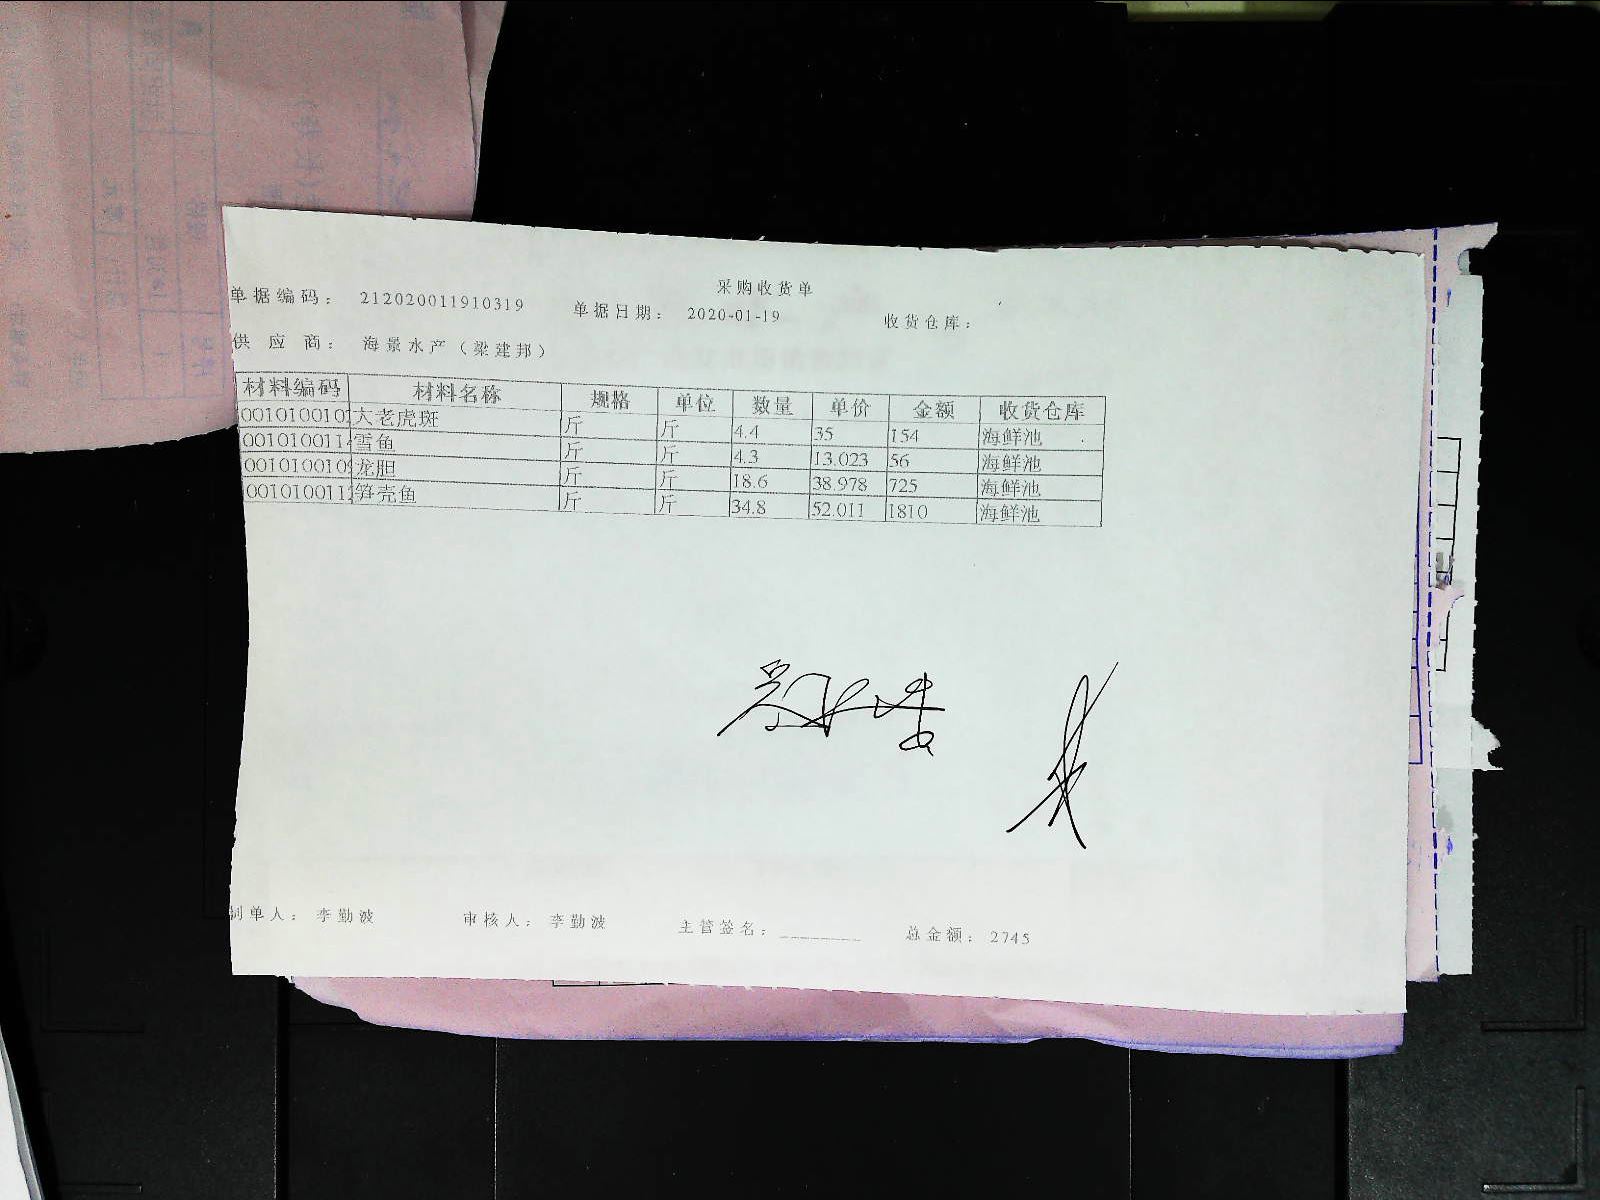 采购收货单
单据编码： 212020011910319 单据日期： 2020-01-19 收货仓库：
供 应 商： 海景水产（梁建邦）
材料编码 材料名称 规格 单位 数量 单价 金额 收货仓库
0010100102 大老虎斑 斤 斤 4.4 35 154 海鲜池
0010100114 雪鱼 斤 斤 4.3 13.023 56 海鲜池
0010100109 龙胆 斤 斤 18.6 38.978 725 海鲜池
0010100112 笋壳鱼 斤 斤 34.8 52.011 1810 海鲜池
制单人： 李勤波 审核人： 李勤波 主管签名：________ 总金额： 2745